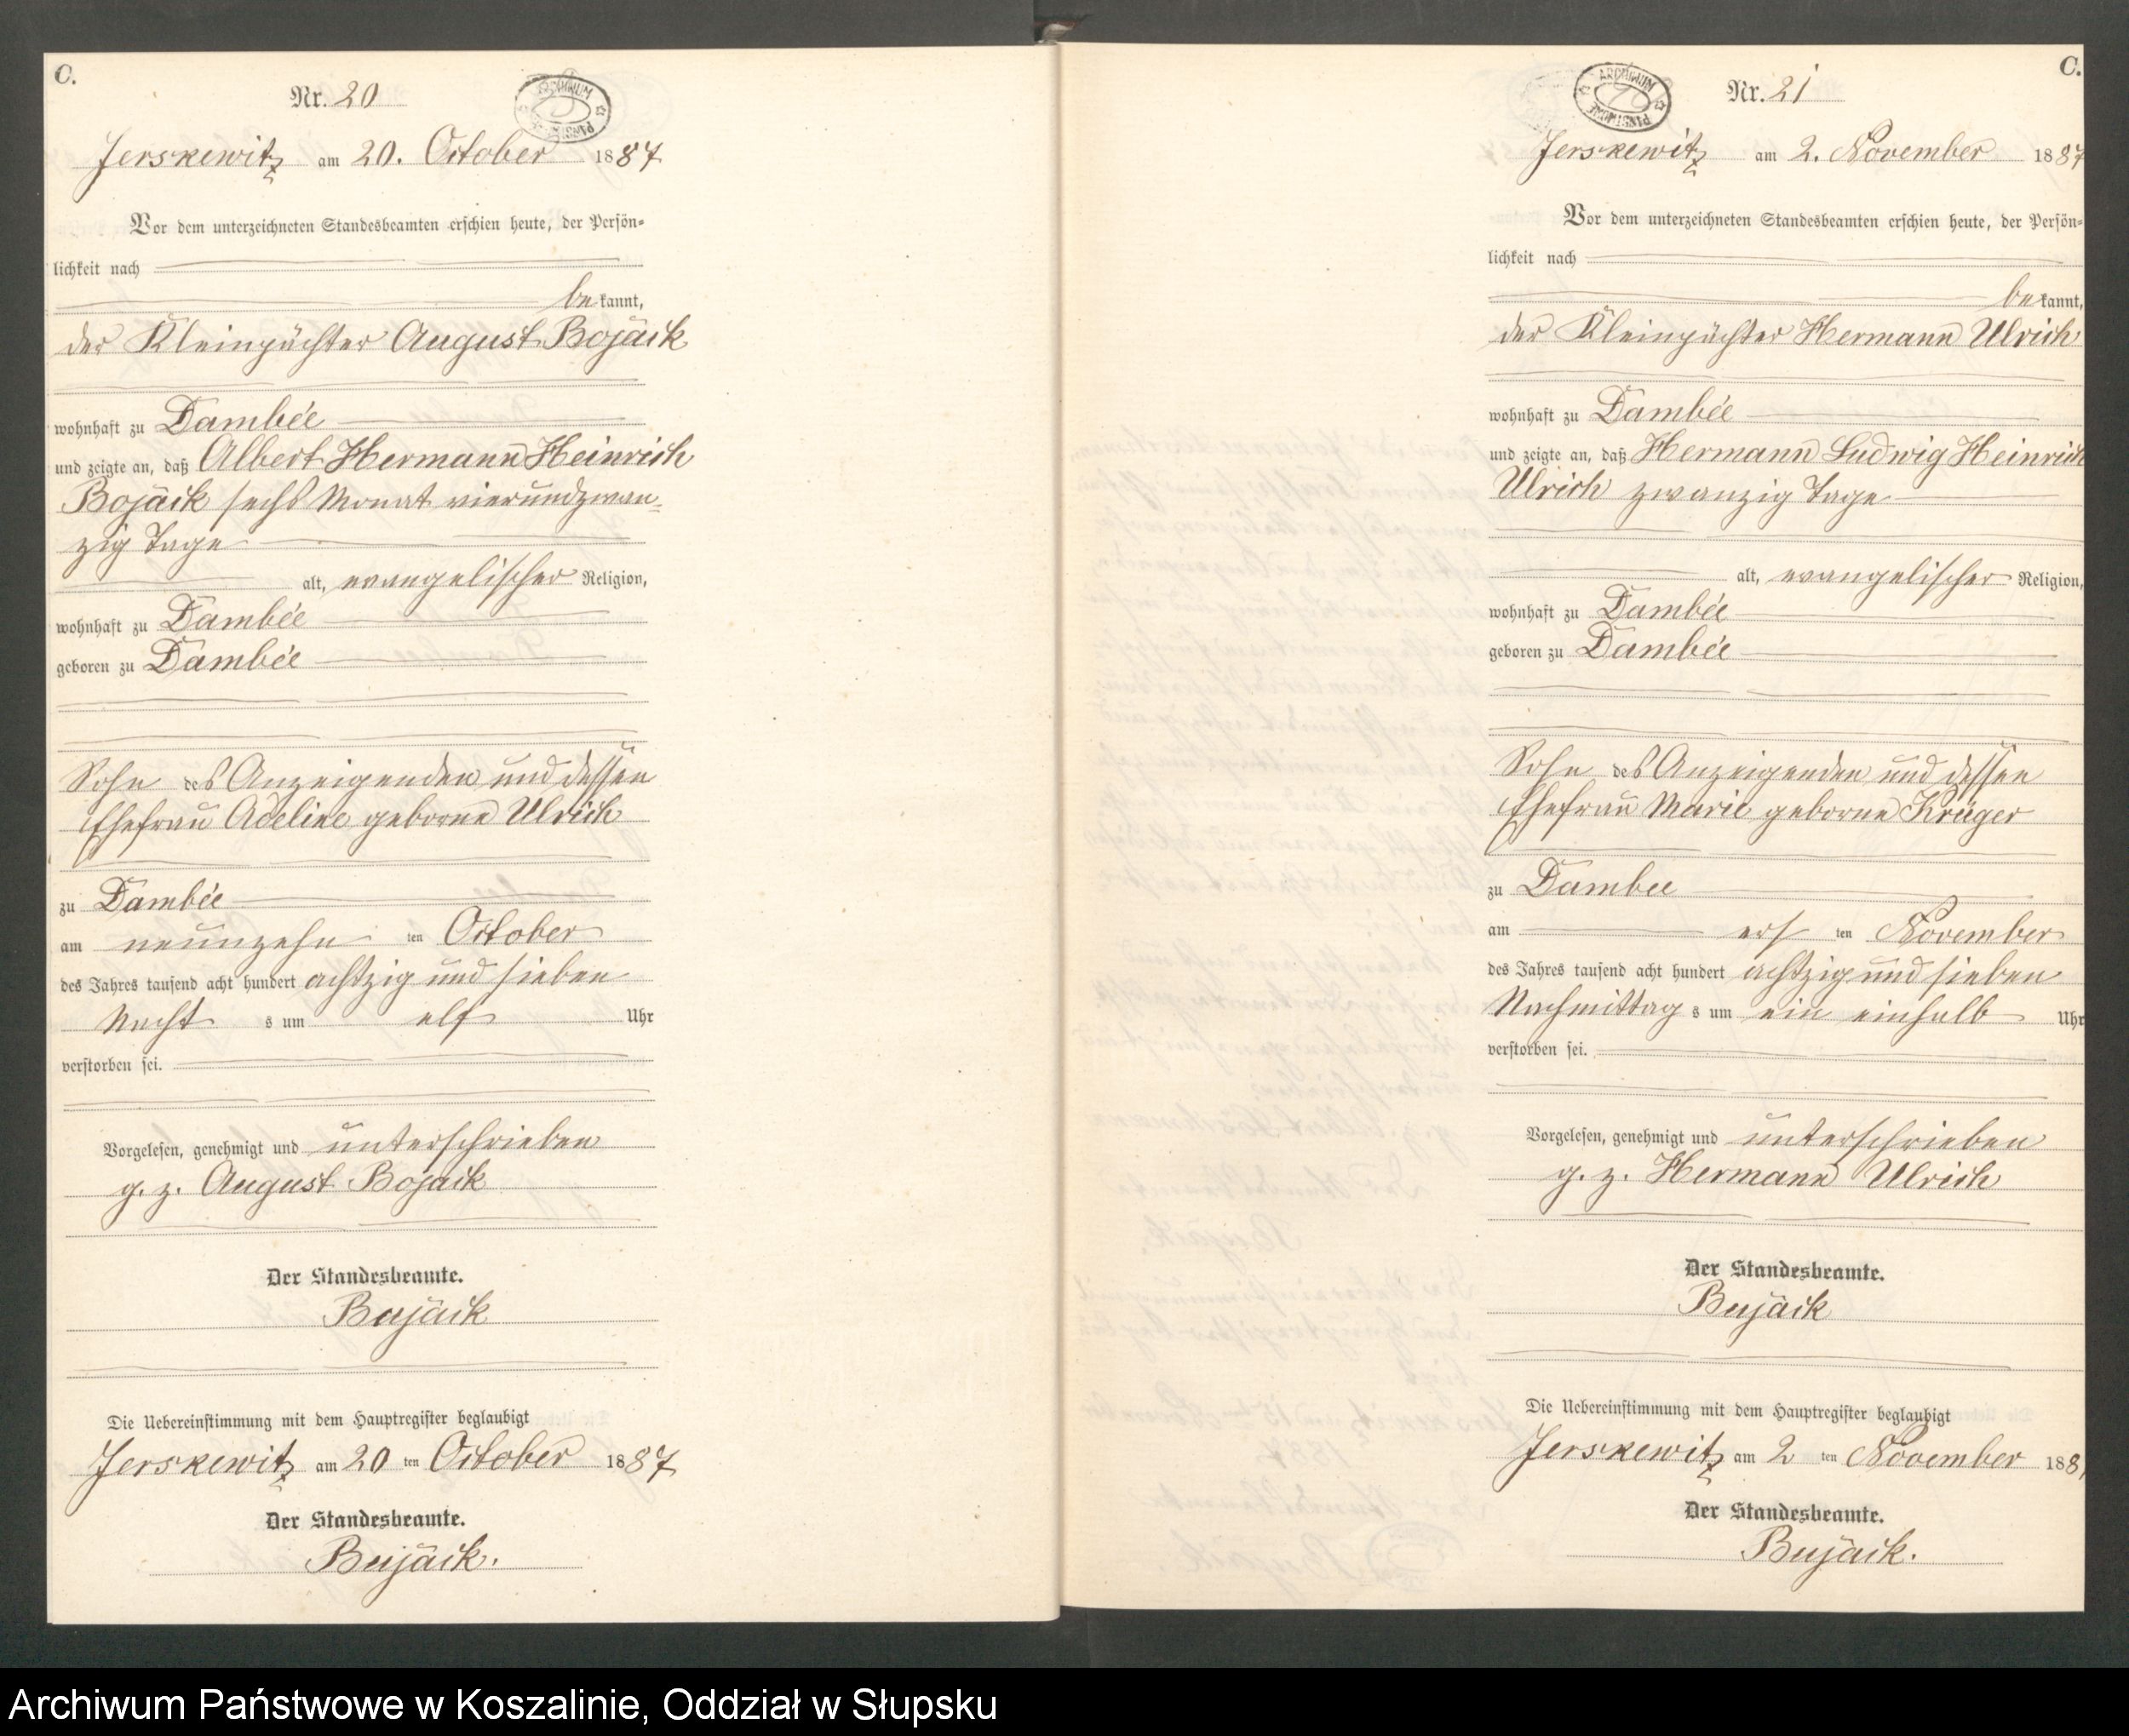 C.
Nr. 20
ARCHIWUM PAŃSTWOWE
Jerskewitz am 20. October 1887
Vor dem unterzeichneten Standesbeamten erschien heute, der Persön=
lichkeit nach
bekannt,
der Kleinpächter August Bojack
wohnhaft zu Dambée
und zeigte an, daß Albert Hermann Heinrich
Bojack sechs Monat vierundzwan=
zig Tage
alt, evangelischer Religion,
wohnhaft zu Dambée
geboren zu Dambée
Sohn des Anzeigenden und dessen
Ehefrau Adeline geborne Ulrich
zu Dambée
am neunzehn ten October
des Jahres tausend acht hundert achtzig und sieben
Nacht s um elf Uhr
verstorben sei.
Vorgelesen, genehmigt und unterschrieben
g. z. August Bojack
Der Standesbeamte.
Bujack
Die Uebereinstimmung mit dem Hauptregister beglaubigt
Jerskewitz am 20 ten October 1887
Der Standesbeamte.
Bujack.
C.
Nr. 21
ARCHIWUM PAŃSTWOWE
Jerskewitz am 2. November 1887
Vor dem unterzeichneten Standesbeamten erschien heute, der Persön=
lichkeit nach
bekannt,
der Kleinpächter Hermann Ulrich
wohnhaft zu Dambée
und zeigte an, daß Hermann Ludwig Heinrich
Ulrich zwanzig Tage
alt, evangelischer Religion,
wohnhaft zu Dambée
geboren zu Dambée
Sohn des Anzeigenden und dessen
Ehefrau Marie geborne Krüger
zu Dambee
am erst ten November
des Jahres tausend acht hundert achtzig und sieben
Nachmittag s um ein einhalb Uhr
verstorben sei.
Vorgelesen, genehmigt und unterschrieben
g. z. Hermann Ulrich
Der Standesbeamte.
Bujack
Die Uebereinstimmung mit dem Hauptregister beglaubigt
Jerskewitz am 2 ten November 188
Der Standesbeamte.
Bujack.
Archiwum Państwowe w Koszalinie, Oddział w Słupsku